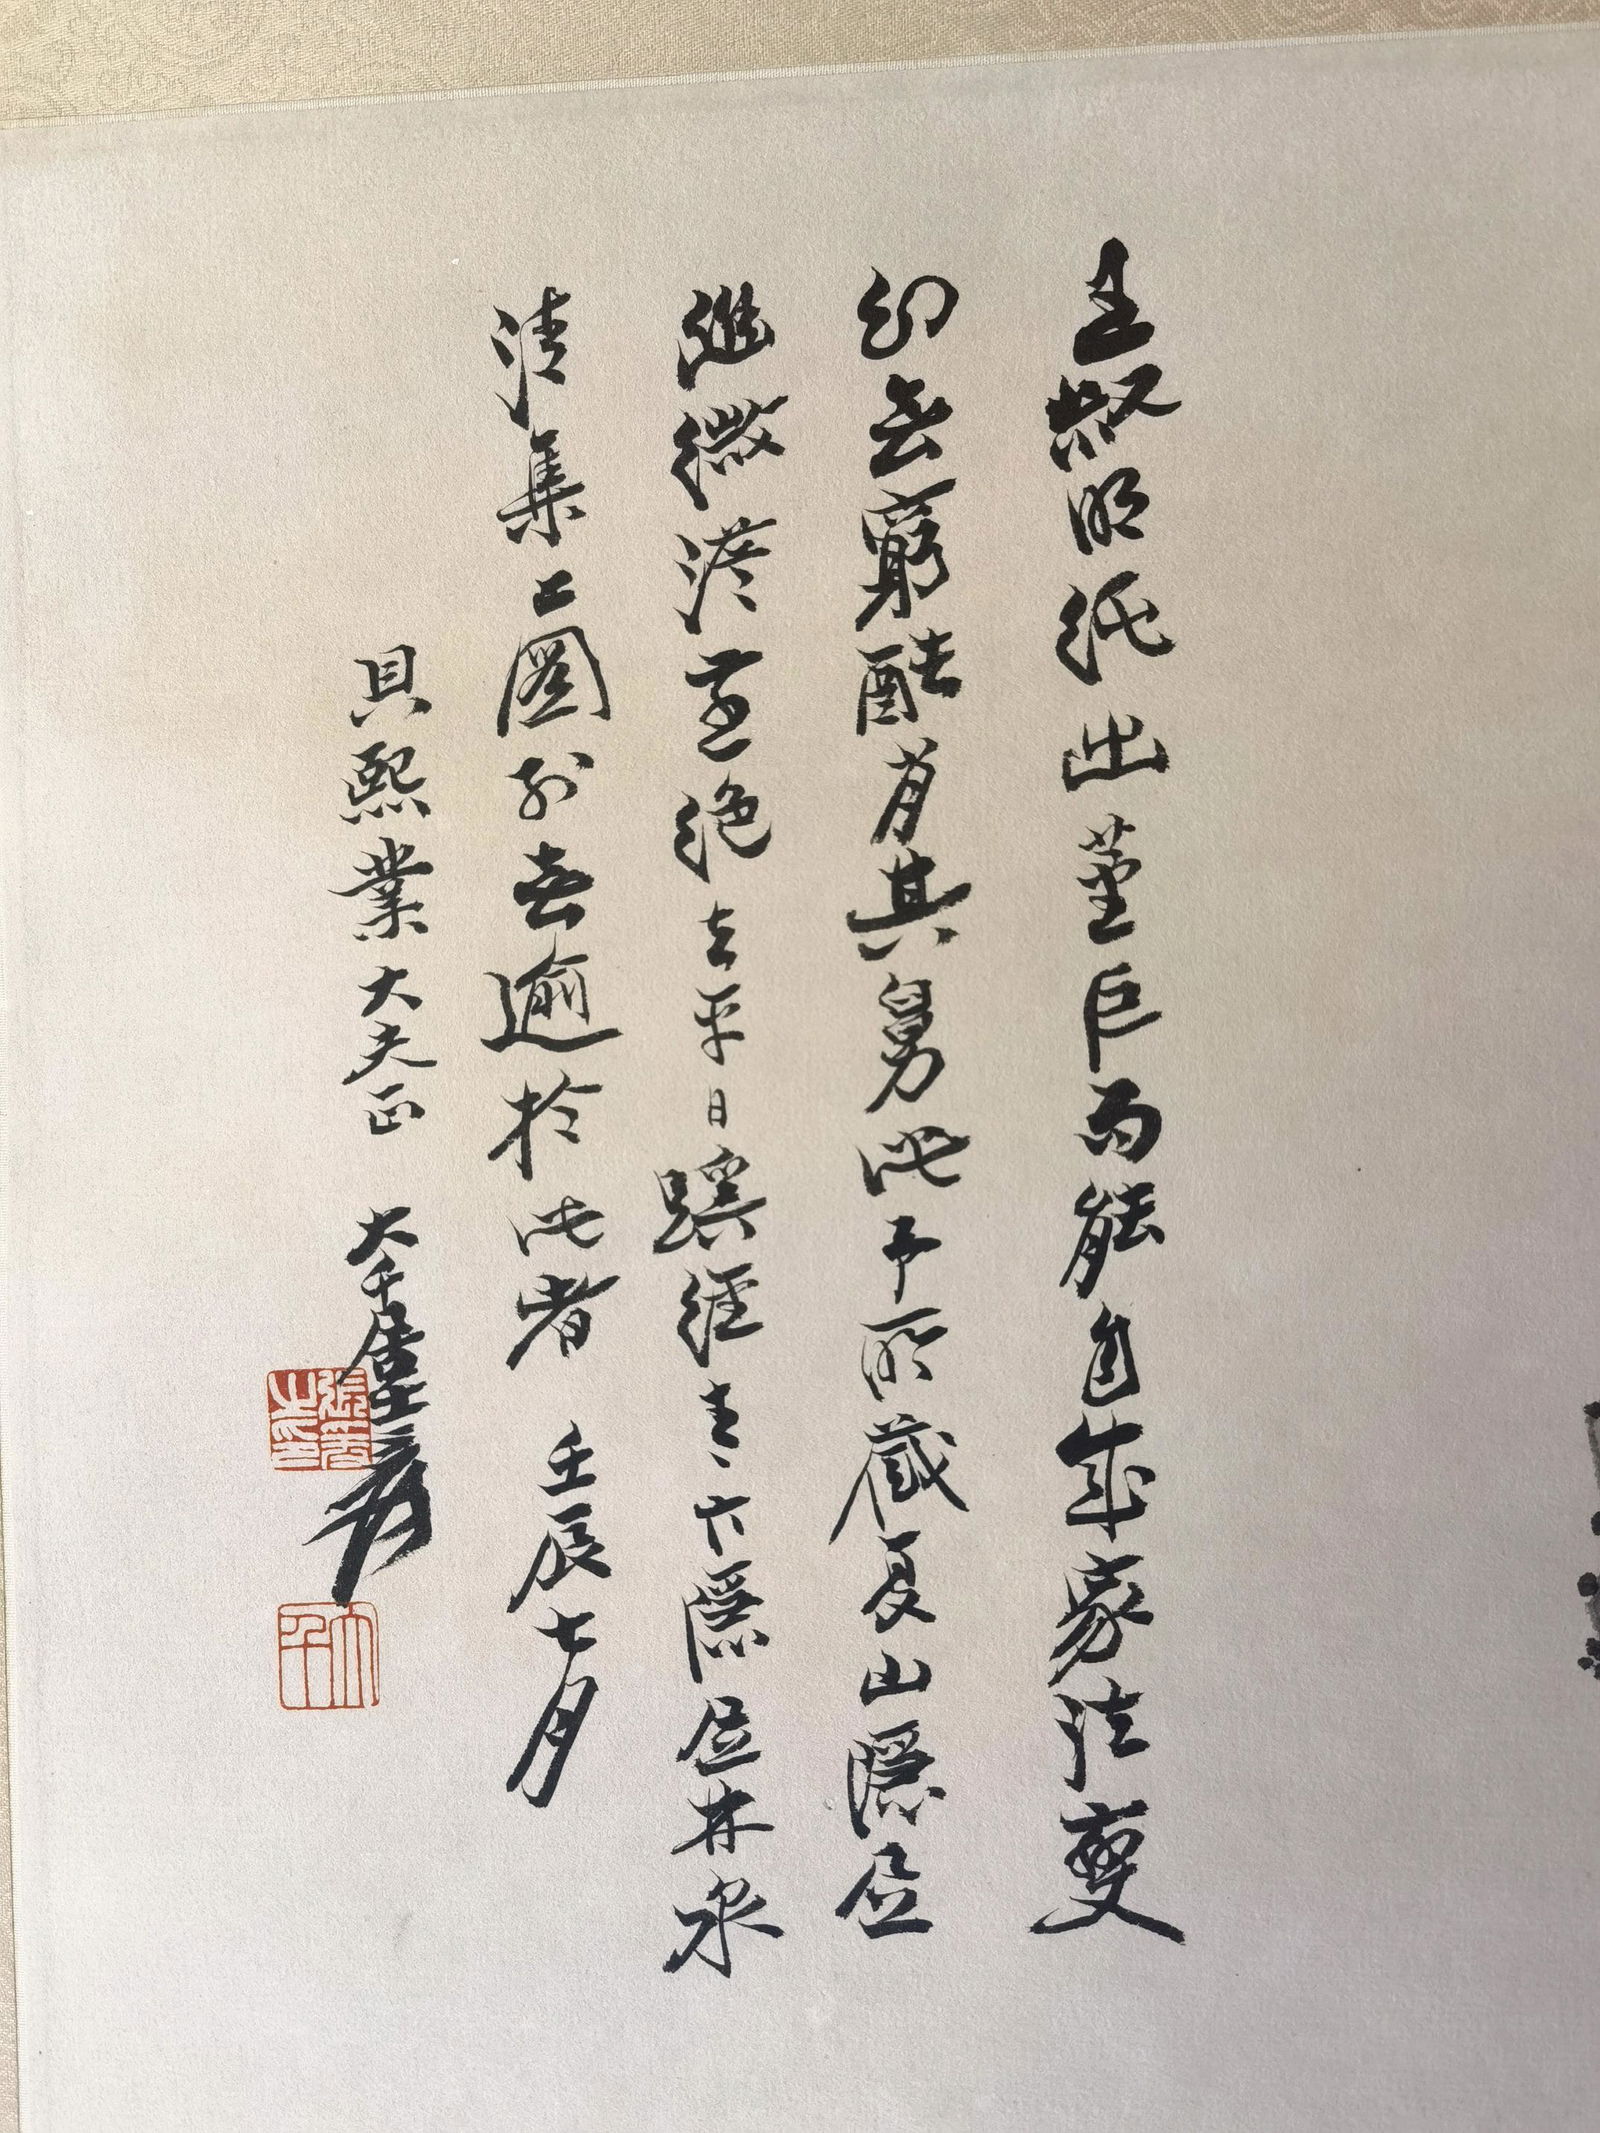 王叔明純出董巨而能自成家法變
幻無窮酷肖其舅此予所藏夏山隱居
進微澹至絕去平日蹊經青卞隱居林泉
清集二圖別無逾於此者 壬辰七月
貝熙業大夫正 大千居士爰
張爰之印
大千